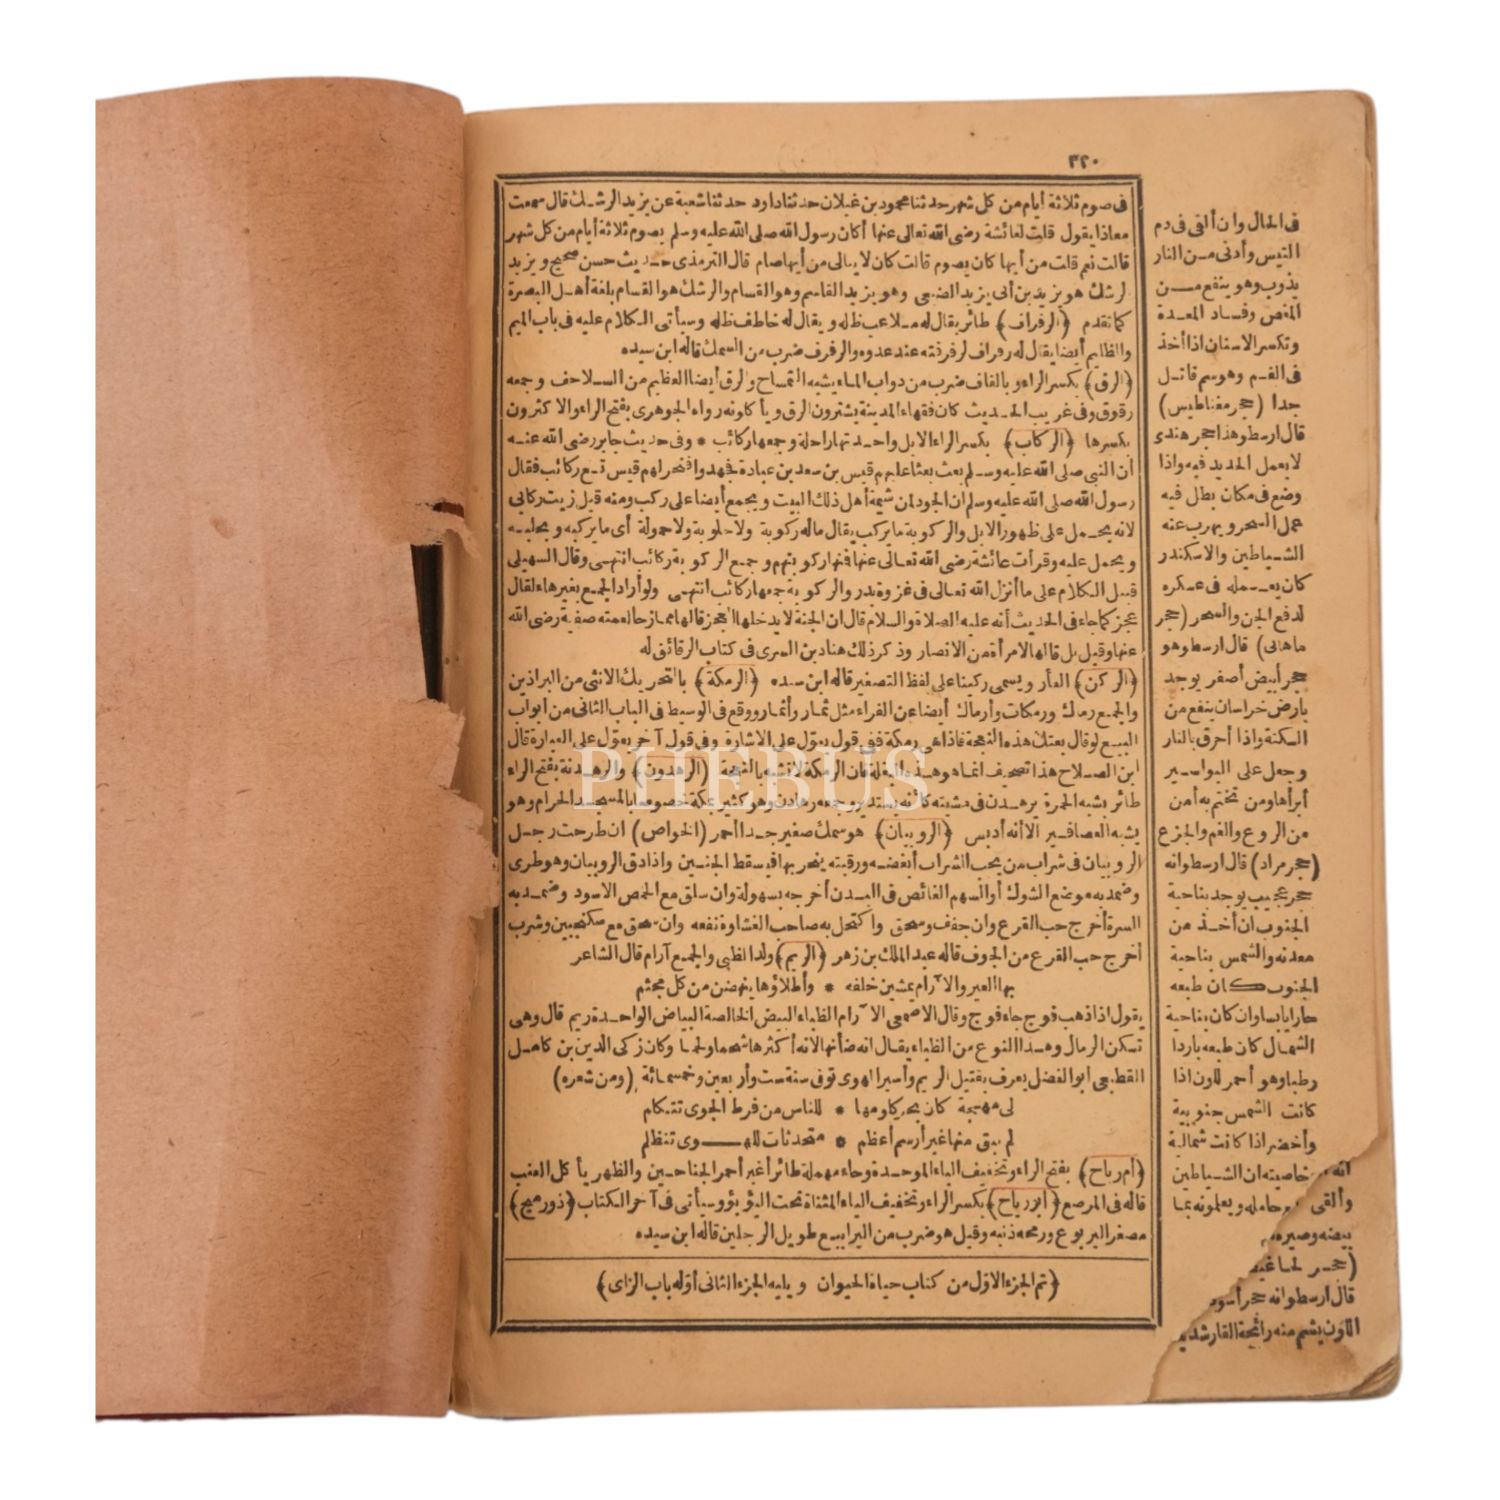 ٣٢٠
فى صوم ثلاثة أيام من كل شهر حدثنا محمود بن غيلان حدثنا داود حدثنا شعبة عن يزيد الرشك قال سمعت
معاذا يقول قلت لعائشة رضى الله تعالى عنها أكان رسول الله صلى الله عليه وسلم يصوم ثلاثة أيام من كل شهر
قالت نعم قلت من أيها كان يصوم قالت كان لا يبالى من أيها صام قال الترمذى حديث حسن صحيح ويزيد
لرشك هو يزيد بن أبى يزيد الضبعى وهو يزيد القاسم وهو القسام والرشك هو القسام بلغة أهل البصرة
كما تقدم ﴿الرفراف﴾ طائر يقال له ملاعب ظله ويقال له خاطف ظله وسيأتى الكلام عليه فى باب الميم
والظليم أيضا يقال له رفراف لرفرفته عند عدوه والرفرف ضرب من السمك قاله ابن سيده
﴿الرق﴾ بكسر الراء وبالقاف ضرب من دواب الماء يشبه التمساح والرق أيضا العظيم من السلاحف وجمعه
رقوق وفى غريب الحديث كان فقهاء المدينة يشترون الرق ويأكلونه رواه الجوهرى بفتح الراء والاكثرون
بكسرها ﴿الركاب﴾ بكسر الراء الابل واحدتها راحلة وجمعها ركائب * وفى حديث جابر رضى الله عنه
أن النبى صلى الله عليه وسلم بعث بعثا عليهم قيس بن سعد بن عبادة فجهدوا فنحر لهم قيس تسع ركائب فقال
رسول الله صلى الله عليه وسلم ان الجود لمن شيمة أهل ذلك البيت ويجمع أيضا على ركب ومنه قيل زيت ركابى
لانه يحمل على ظهور الابل والركوبة ما يركب يقال ماله ركوبة ولا حلوبة ولا حمولة أى ما يركبه ويحلبه
ويحمل عليه وقرأت عائشة رضى الله تعالى عنها فمنها ركوبتهم وجمع الركوبة ركائب انتهى وقال السهيلى
قبيل الكلام على ما أنزل الله تعالى فى غزوة بدر والركوبة جمعها ركائب انتهى ولو أراد الجمع بغير هاء لقال
عجز كما جاء فى الحديث أنه عليه الصلاة والسلام قال ان الجنة لا يدخلها العجز قالها ممازحا لعمته صفية رضى الله
عنها وقيل بل قالها لامرأة من الانصار وذكر ذلك هناد بن السرى فى كتاب الرقائق له
﴿الركن﴾ الفأر ويسمى ركينا على لفظ التصغير قاله ابن سيده ﴿الرمكة﴾ بالتحريك الانثى من البراذين
والجمع رماك ورمكات وأرماك أيضا عن الفراء مثل ثمار وأثمار ووقع فى الوسيط فى الباب الثانى من أبواب
البيع لو قال بعتك هذه النعجة فاذا هى رمكة ففى قول يعوّل على الاشارة وفى قول آخر يعوّل على العبارة قال
ابن الصلاح هذا تصحيف انما هو هذه البغلة فان الرمكة لا تشبه بالنعجة ﴿الرهدون﴾ والرهدنة بفتح الراء
طائر يشبه الحمرة يرهدن فى مشيته كأنه يستدير وجمعه رهادن وهو كثير بمكة خصوصا بالمسجد الحرام وهو
يشبه العصافير الا أنه أدبس ﴿الروبيان﴾ هو سمك صغير جدا أحمر (الخواص) ان طرحت رجل
الروبيان فى شراب من يحب الشراب أبغضه ورقبته يبخر بها فيسقط الجنين واذا دق الروبيان وهو طرى
وضمد به موضع الشوك أو السهم الغائص فى البدن أخرجه بسهولة وان سلق مع الحمص الاسود وضمد به
السرة أخرج حب القرع وان جفف وسحق واكتحل به صاحب الغشاوة نفعه وان سحق مع سكنجبين وشرب
أخرج حب القرع من الجوف قاله عبد الملك بن زهر ﴿الريم﴾ ولد الظبى والجمع آرام قال الشاعر
بها العير والآرام يمشين خلفه * وأطلاؤها ينهضن من كل مجثم
يقول اذا ذهب فوج جاء فوج وقال الاصمعى الآرام الظباء البيض الخالصة البياض الواحدة ريم قال وهى
تسكن الرمال وهذا النوع من الظباء يقال انه ضأنها لانه أكثرها شحما ولحما وكان زكى الدين بن كامل
القطيعى أبو الفضل يعرف بقتيل الريم وأسير الهوى توفى سنة ست وأربعين وخمسمائة (ومن شعره)
لى مهجة كادت بحر كلومها * للناس من فرط الجوى تتكلم
لم يبق منها غير أرسم أعظم * متحدثات للهوى تتظلم
﴿أم رباح﴾ بفتح الراء وتخفيف الباء الموحدة وحاء مهملة طائر أغبر أحمر الجناحين والظهر يأكل العنب
قاله فى المرصع ﴿أبو رياح﴾ بكسر الراء وتخفيف الياء المثناة تحت اليؤيؤ وسيأتى فى آخر الكتاب ﴿ذو رميح﴾
مصغر اليربوع ورمحه ذنبه وقيل هو ضرب من اليرابيع طويل الرجلين قاله ابن سيده
﴿تم الجزء الاوّل من كتاب حياة الحيوان ويليه الجزء الثانى أوّله باب الزاى﴾
فى الحال وان ألقى فى دم
التيس وأدنى من النار
يذوب وهو ينفع من
المغص وفساد المعدة
وتكسر الاسنان اذا أخذ
فى الفم وهو سم قاتل
جدا (حجر مغناطيس)
قال ارسطو هذا حجر هندى
لا يعمل الحديد فيه واذا
وضع فى مكان بطل فيه
عمل السحر ويهرب عنه
الشياطين والاسكندر
كان يعمله فى عسكره
لدفع الجن والسحر (حجر
ماهانى) قال ارسطو هو
حجر أبيض أصفر يوجد
بارض خراسان ينفع من
السكتة واذا أحرق بالنار
وجعل على البواسير
أبرأها ومن تختم به أمن
من الروع والغم والجزع
(حجر مراد) قال ارسطو انه
حجر عجيب يوجد بناحية
الجنوب ان أخذ من
معدنه والشمس بناحية
الجنوب كان طبعه
حارا يابسا وان كان بناحية
الشمال كان طبعه باردا
رطبا وهو أحمر اللون اذا
كانت الشمس جنوبية
وأخضر اذا كانت شمالية
خاصيته ان الشياطين
وألقى حامله ويعلمونه بما
(حجر
قال ارسطو انه حجر أسود
اللون يشم منه رائحة القار شديد
PHEBUS